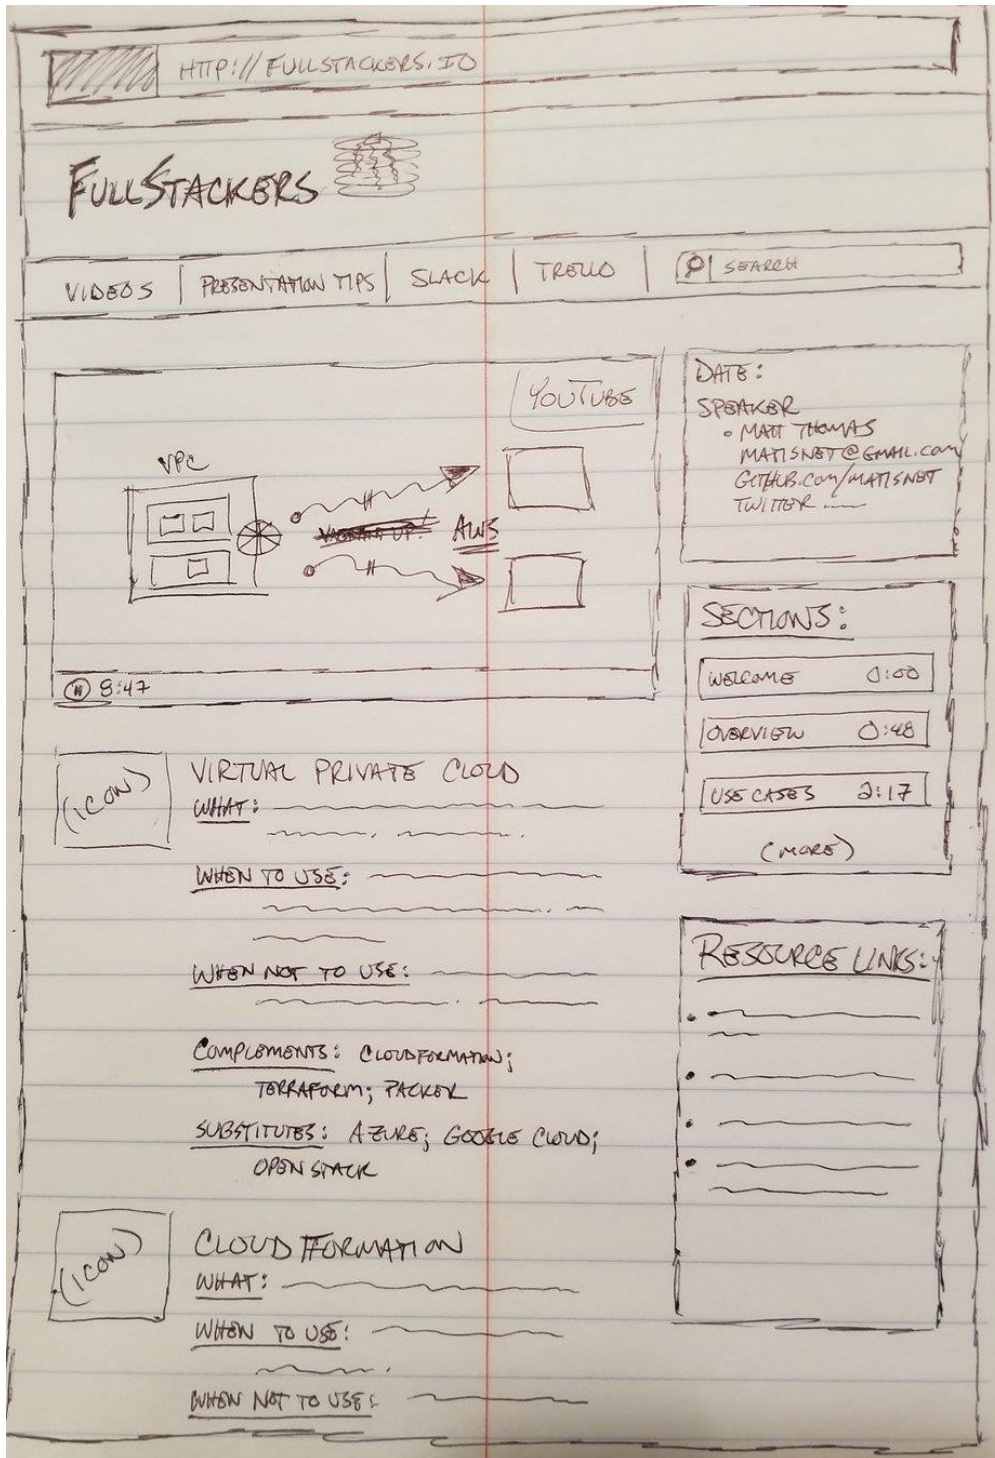 HTTP://FULLSTACKERS.IO
FULLSTACKERS
VIDEOS
PRESENTATION TIPS
SLACK
TRELLO
SEARCH
YOUTUBE
VPC
AWS
8:47
DATE:
SPEAKER
• MATT THOMAS
MATISNET@GMAIL.COM
GITHUB.COM/MATISNET
TWITTER
SECTIONS:
WELCOME 0:00
OVERVIEW 0:48
USE CASES 2:17
(MORE)
(ICON)
VIRTUAL PRIVATE CLOUD
WHAT:
WHEN TO USE:
WHEN NOT TO USE:
COMPLEMENTS: CLOUDFORMATION;
TERRAFORM; PACKER
SUBSTITUTES: AZURE; GOOGLE CLOUD;
OPENSTACK
RESOURCE LINKS:
(ICON)
CLOUD FORMATION
WHAT:
WHEN TO USE:
WHEN NOT TO USE: